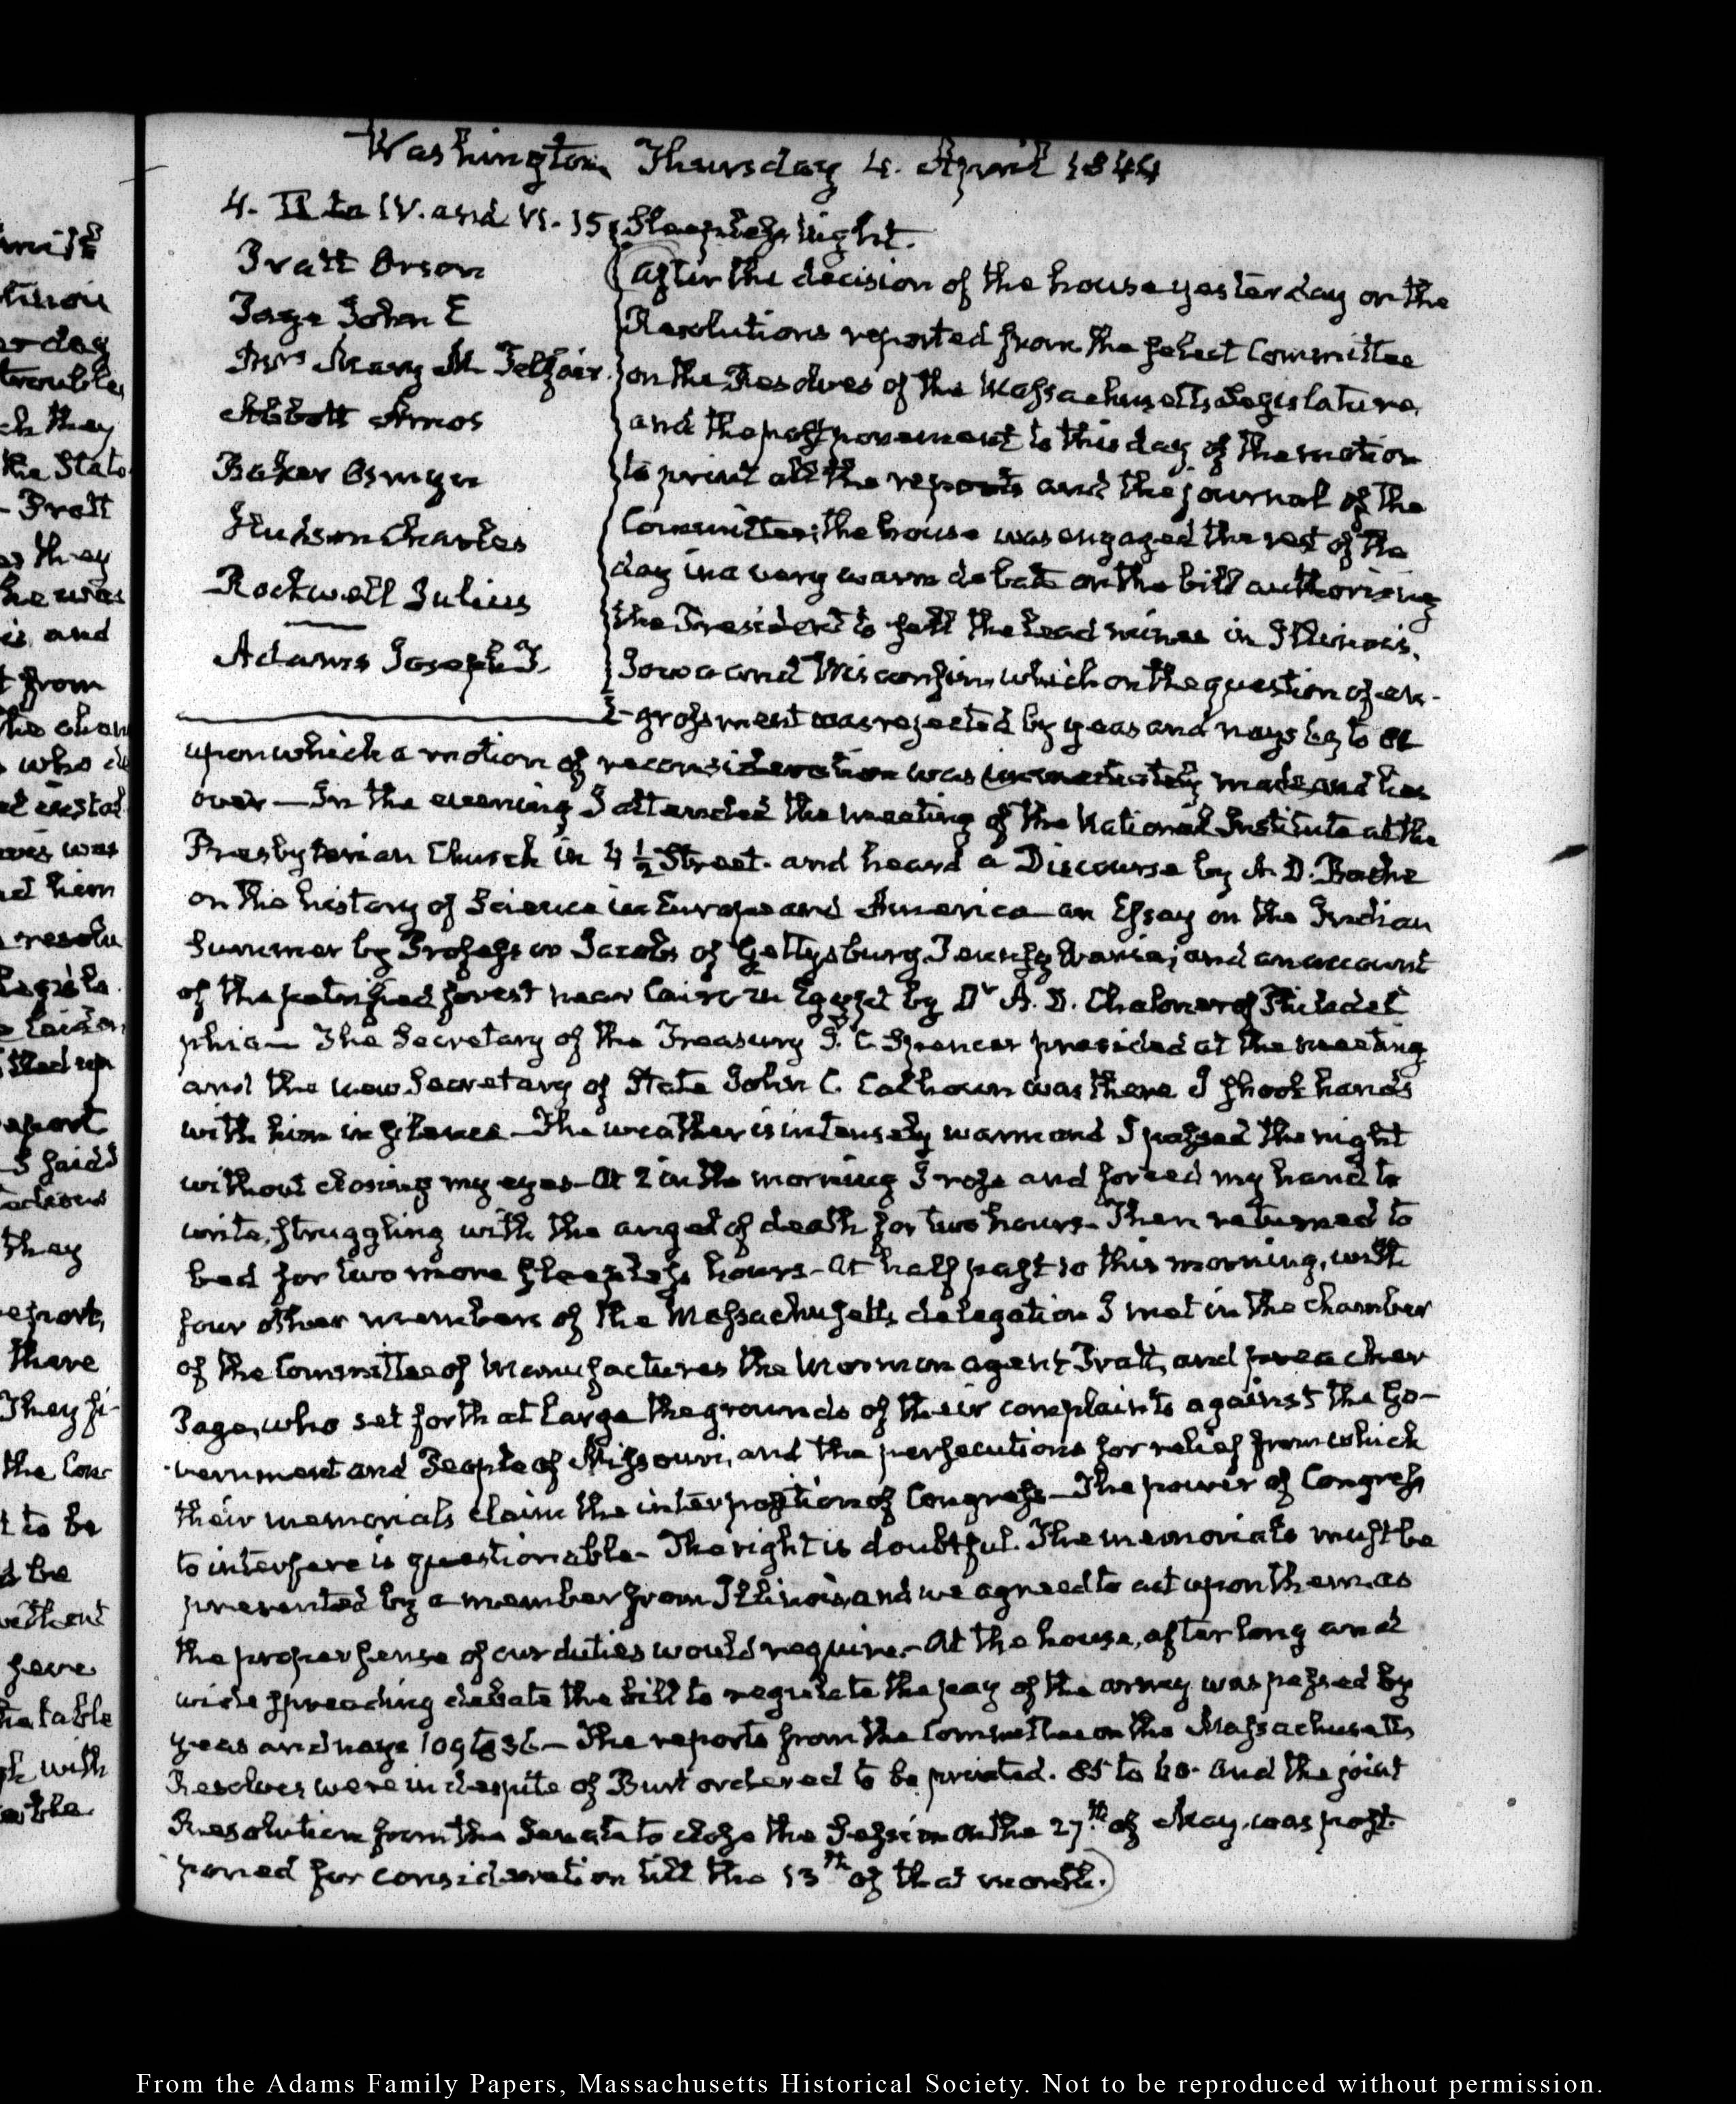 Washington Thursday 4. April 1844
4. II to IV. and VI. 15
Pratt Orson
Page John E
Mrs Mary M Telfair.
Abbott Amos
Baker Osmyn
Hudson Charles
Rockwell Julius
Adams Joseph T.
Sleepless night.
(After the decision of the house yesterday on the
Resolutions reported from the select Committee
on the Resolves of the Massachusetts Legislature,
and the postponement to this day of the motion
to print all the reports and the journal of the
Committee; the house was engaged the rest of the
day in a very warm debate on the bill authorising
the President to sell the lead mines in Illinois,
Iowa and Wisconsin, which on the question of en-
-grossment was rejected by yeas and nays to
upon which a motion of reconsideration was immediately made and lies
over — In the evening I attended the meeting of the National Institute at the
Presbyterian Church in 4 1/2 Street. and heard a Discourse by A. D. Bache
on the history of Science in Europe and America — an Essay on the Indian
Summer by Professor Jacobs of Gettysburg Pennsylvania; and an account
of the petrified forest near Cairo in Egypt by Dr A. D. Chaloner of Philadel
phia — The Secretary of the Treasury J. C. Spencer presided at the meeting
and the new Secretary of State John C. Calhoun was there I shook hands
with him in silence — The weather is intensely warm and I passed the night
without closing my eyes — At 2 in the morning I rose and forced my hand to
write, struggling with the angel of death for two hours — Then returned to
bed for two more sleepless hours — At half past 10 this morning, with
four other members of the Massachusetts delegation I met in the chamber
of the Committee of Manufactures the Mormon agent Pratt, and preacher
Page, who set forth at large the grounds of their complaints against the Go-
-vernment and People of Missouri, and the persecutions for relief from which
their memorials claim the interposition of Congress — The power of Congress
to interfere is questionable — The right is doubtful. The memorials must be
presented by a member from Illinois, and we agreed to act upon them as
the proper sense of our duties would require. — At the house, after long and
wide spreading debate the bill to regulate the pay of the army was passed by
yeas and nays 109 to 36 — The reports from the Committee on the Massachusetts
Resolves were in despite of Burt ordered to be printed. 85 to 60. And the joint
Resolution from the Senate to close the Session on the 27th of May. was post
poned for consideration till the 13th of that month.)
From the Adams Family Papers, Massachusetts Historical Society. Not to be reproduced without permission.